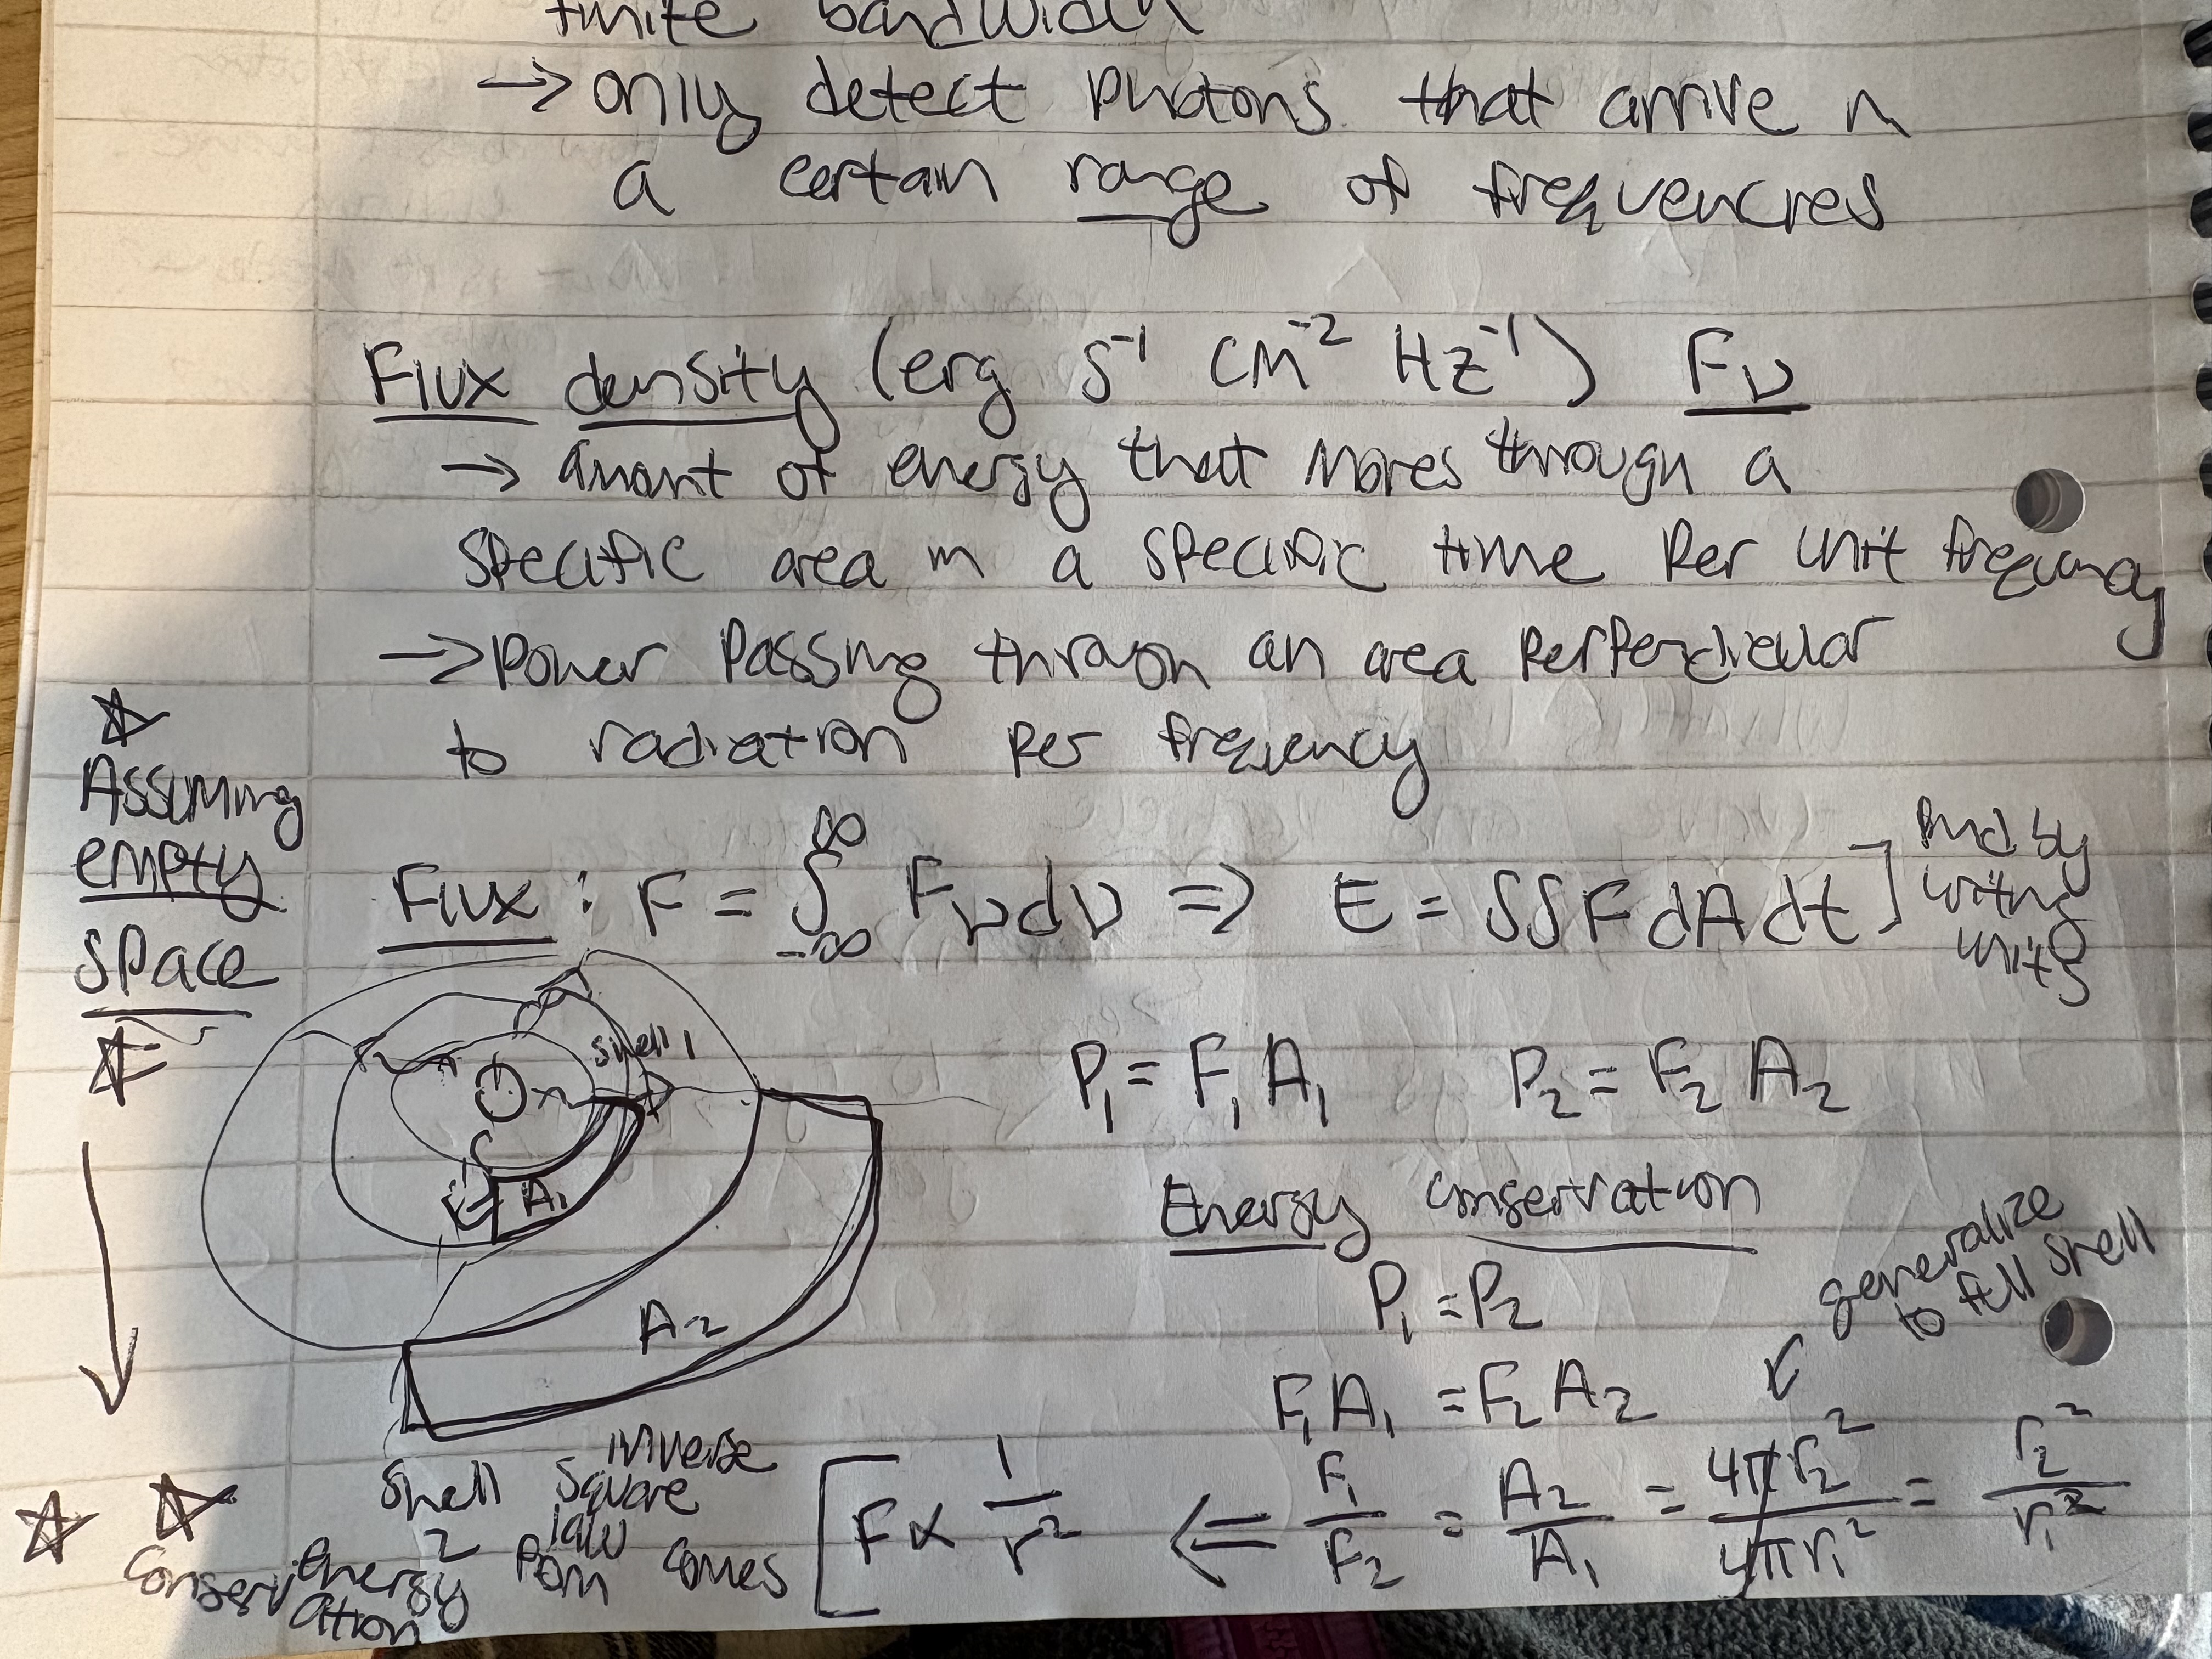 finite bandwidth
→ only detect photons that arrive in
a certain range of frequencies
Flux density (erg s⁻¹ cm⁻² Hz⁻¹) Fν
→ amount of energy that moves through a
specific area in a specific time per unit frequency
→ power passing through an area perpendicular
to radiation per frequency
☆
Assuming
empty
space
☆
Flux : F = ∫_{-∞}^{∞} Fν dν ⇒ E = ∫∫ F dA dt ]
find by
units
shell 1
A₁
A₂
shell
2
P₁ = F₁ A₁ P₂ = F₂ A₂
Energy conservation
P₁ = P₂
generalize
to full shell
F₁ A₁ = F₂ A₂
[ F ∝ 1/r² ⇐ F₁/F₂ = A₂/A₁ = 4πr₂²/4πr₁² = r₂²/r₁²
☆ ☆
inverse
square
law
comes
from
energy
conservation